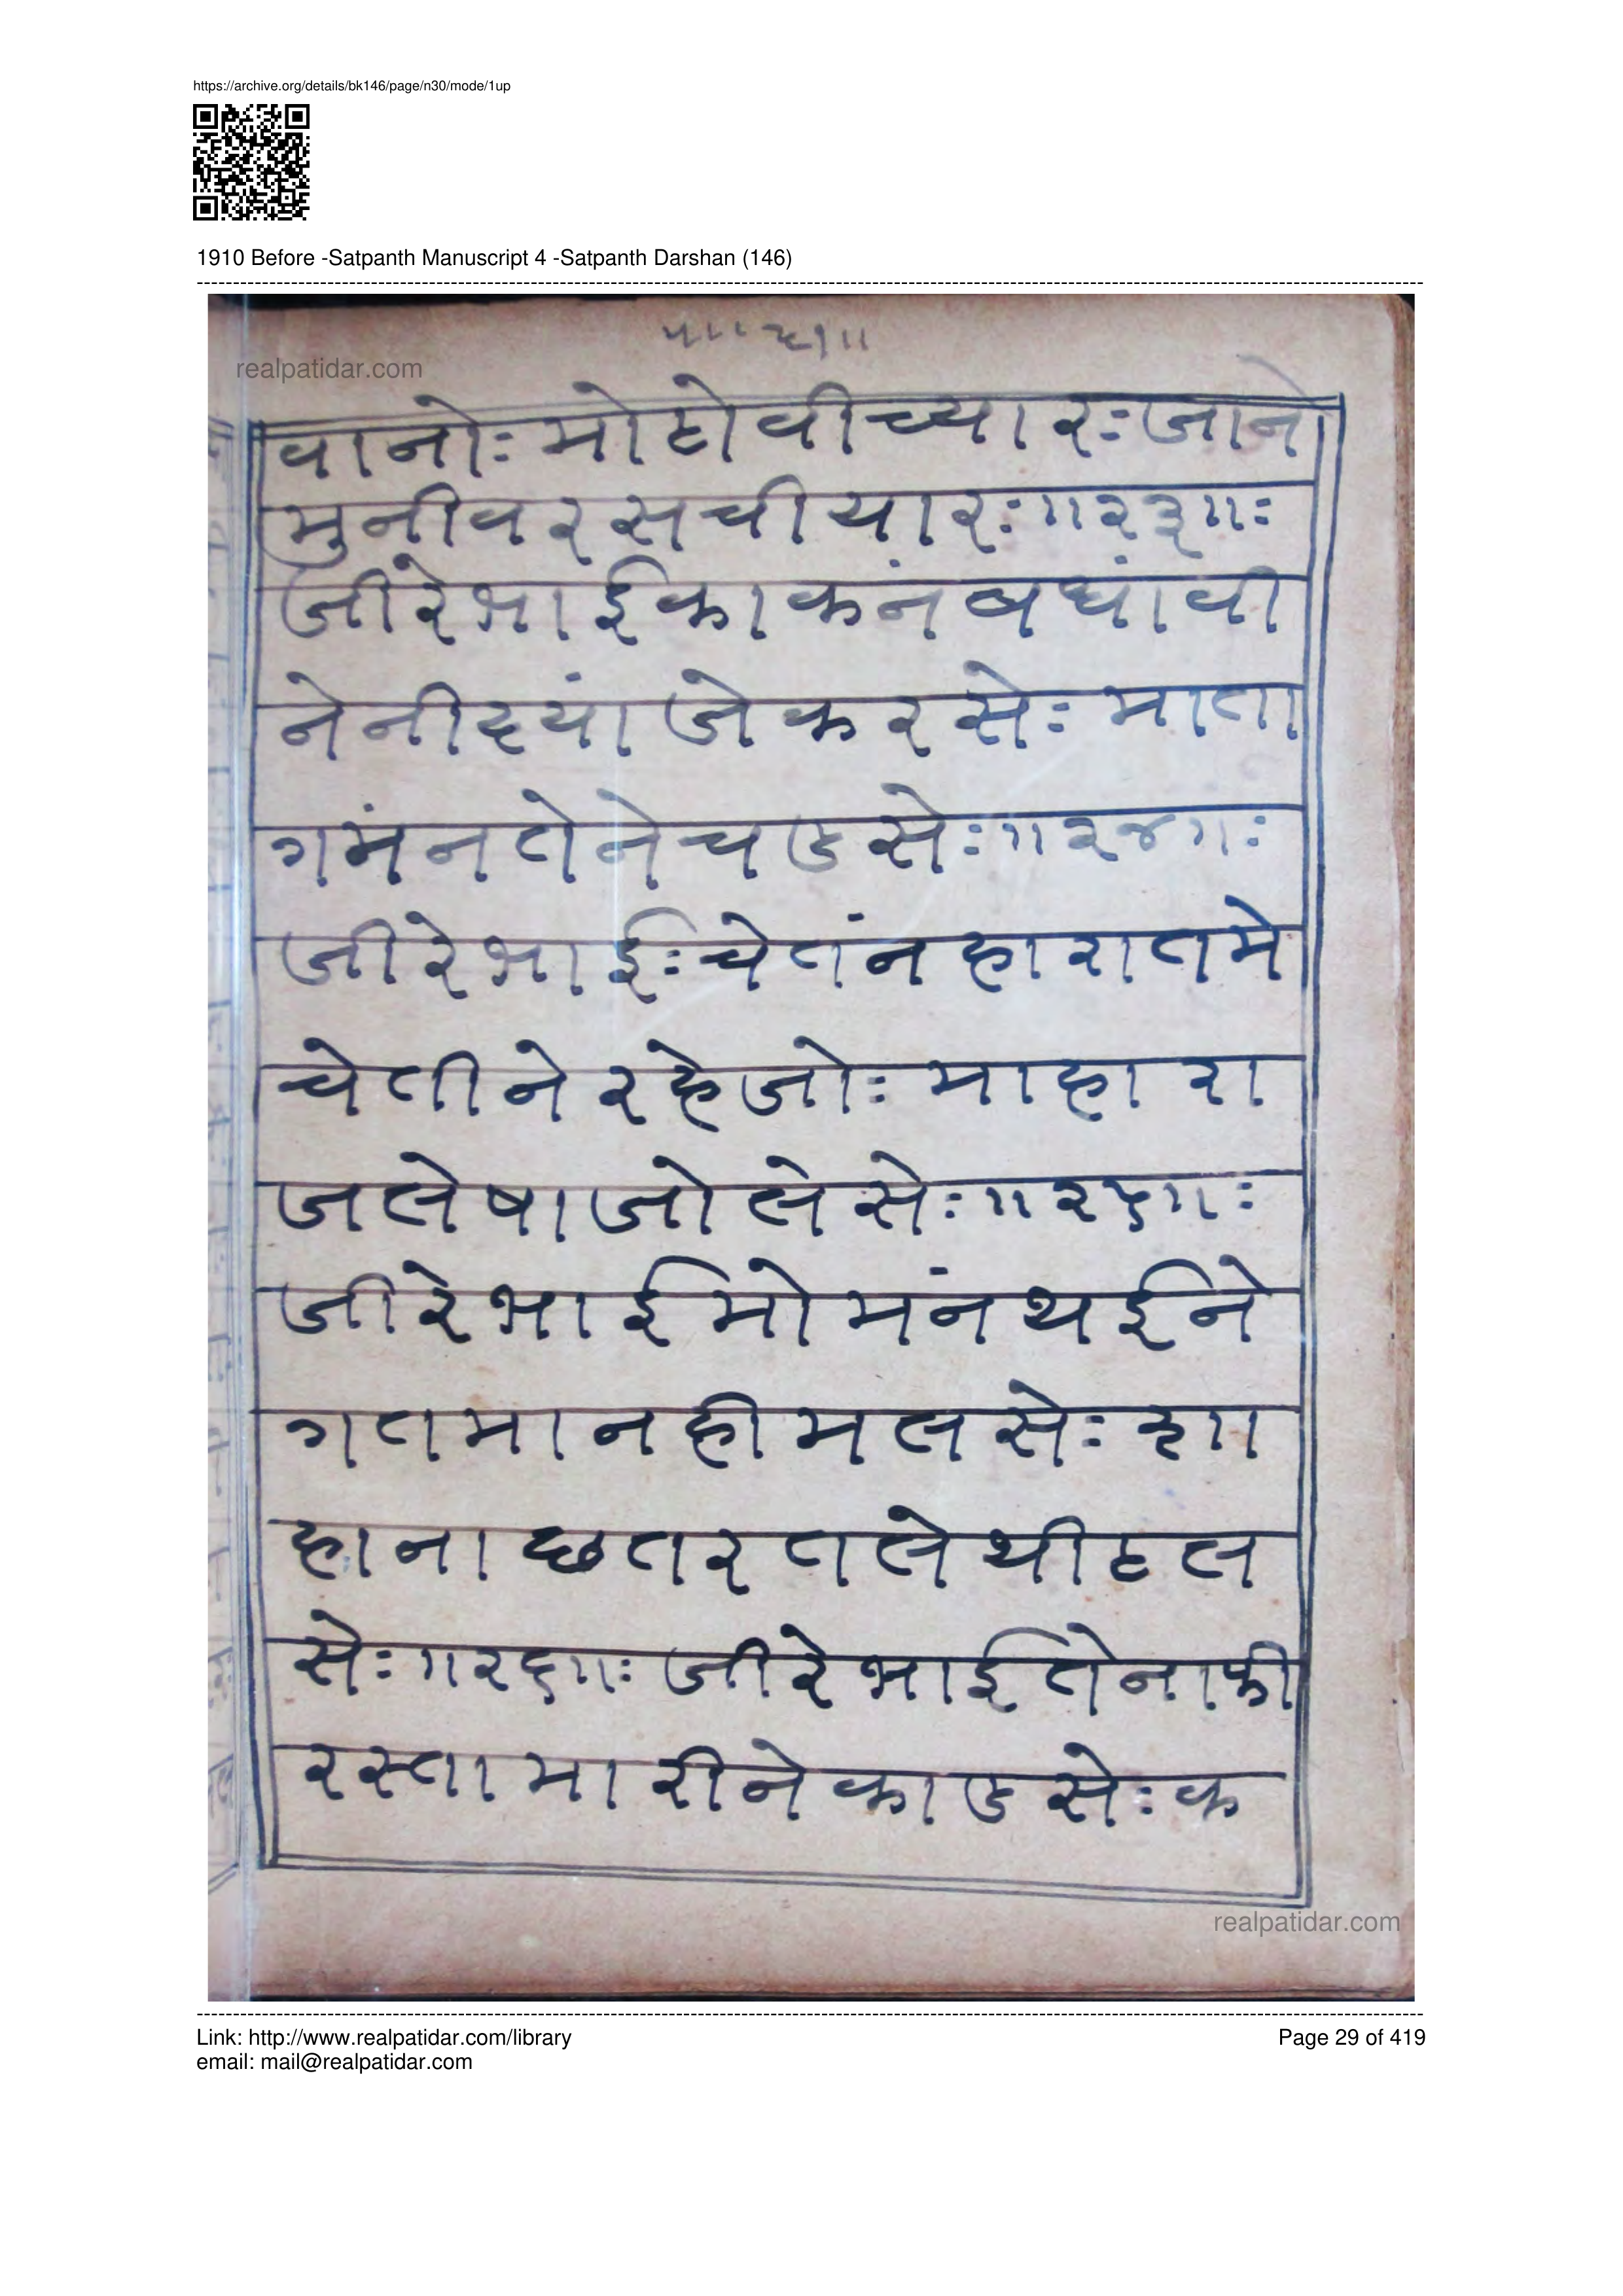 https://archive.org/details/bk146/page/n30/mode/1up
1910 Before -Satpanth Manuscript 4 -Satpanth Darshan (146)
realpatidar.com
वानोः मोटो वीच्यारः जाने
मुनीवर सचीयारः॥२३॥ः
जीरे भाई काकंन बधांवी
ने नींद्यां जे करसेः माता
गमंन तेने चडसेः॥२४॥ः
जीरे भाईः चेतंन हारा तमे
चेतीने रहेजोः माहारा
ज लेषा जो लेसेः॥२५॥ः
जीरे भाई मोमंन थईने
गतमा नही मलसेः शा
हाना छतर तले थी टल
सेः॥२६॥ः जीरे भाई तेना फी
रस्ता मारीने काडसेः क
realpatidar.com
Link: http://www.realpatidar.com/library
Page 29 of 419
email: mail@realpatidar.com